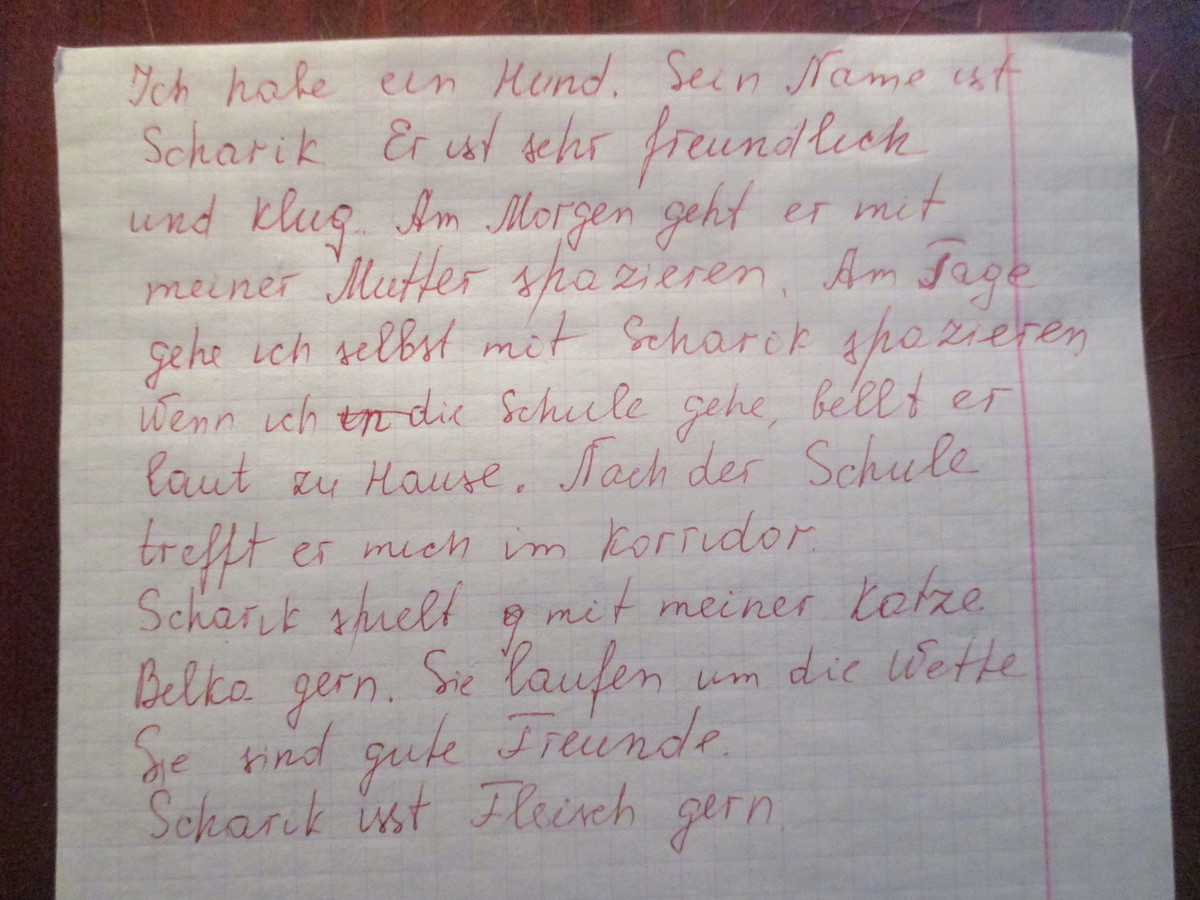 Ich habe ein Hund. Sein Name ist
Scharik Er ist sehr freundlich
und klug. Am Morgen geht er mit
meiner Mutter spazieren. Am Tage
gehe ich selbst mit Scharik spazieren
Wenn ich in die Schule gehe, bellt er
laut zu Hause. Nach der Schule
trefft er mich im Korridor.
Scharik spielt g mit meiner Katze
Belka gern. Sie laufen um die Wette
Sie sind gute Freunde.
Scharik isst Fleisch gern.